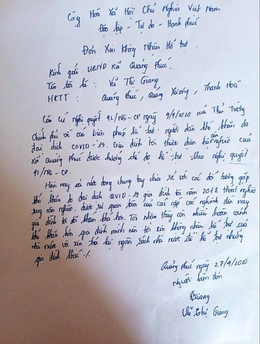 Cộng Hoà Xã Hội Chủ Nghĩa Việt Nam
Độc lập - Tự do - Hạnh phúc
Đơn Xin Không Nhận Hỗ trợ
Kính gửi UBND Xã Quảng Phúc.
Tên tôi là: Vũ Thị Giang
HKTT: Quảng Phúc, Quảng Xương, Thanh Hoá
Căn cứ nghị quyết 42/NQ-CP ngày 9/4/2020 của Thủ Tướng
Chính phủ về các biện pháp hỗ trợ người dân khó khăn do
đại dịch COVID-19. Gia đình tôi thuộc diện hộ nghèo của
Xã Quảng Phúc được hưởng chế độ hỗ trợ theo nghị quyết
42/NQ-CP.
Hôm nay cả nước đang chung tay chia sẻ với các đối tượng gặp
khó khăn do đại dịch COVID-19. Gia đình tôi năm 2018 thoát nghèo
sang cận nghèo, được sự quan tâm của các cấp các nghành đến nay
gia đình tôi đỡ khó khăn hơn. Tôi nhận thấy còn nhiều hoàn cảnh
khó khăn hơn gia đình mình nên tôi xin không nhận hỗ trợ của
nhà nước và xin trả lại ngân sách nhà nước để hỗ trợ những
gia đình khác./.
Quảng Phúc ngày 27/4/2020
Người làm đơn
Giang
Vũ Thị Giang